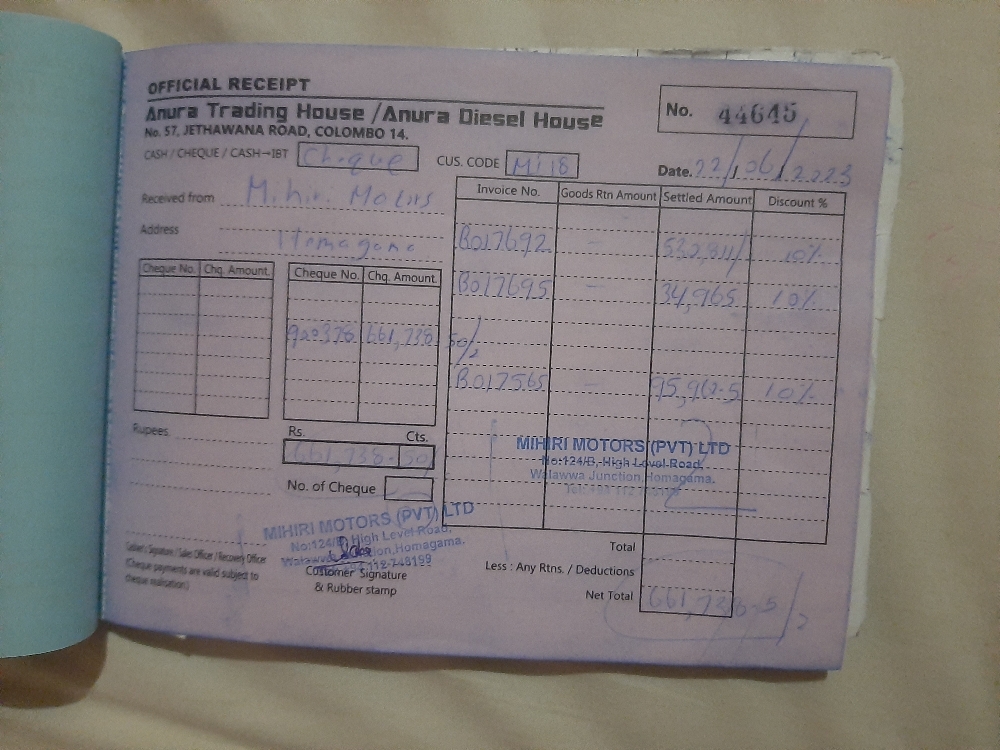 OFFICIAL RECEIPT
Anura Trading House / Anura Diesel House
No. 57, JETHAWANA ROAD, COLOMBO 14.
No. 44645
CASH / CHEQUE / CASH→IBT Cheque CUS. CODE Mi 18
Date. 22/06/2023
Received from Mihiri Motors
Address Homagama
Invoice No. Goods Rtn Amount Settled Amount Discount %
B017692 - 530,811/ 10%
B017695 - 34,965 10%
B017565 - 95,962.5 10%
Cheque No. Chq. Amount. Cheque No. Chq. Amount.
920378 661,738 50/
Rupees
Rs. Cts.
661,738 50
No. of Cheque
MIHIRI MOTORS (PVT) LTD
No:124/B, High Level Road,
Walawwa Junction, Homagama.
MIHIRI MOTORS (PVT) LTD
No:124/B, High Level Road,
Walawwa Junction, Homagama.
112-748199
Customer Signature
& Rubber stamp
Salesman's Signature / Sales Officer / Recovery Officer
(Cheque payments are valid subject to
cheque realisation.)
Total
Less : Any Rtns. / Deductions
Net Total 661,738-5